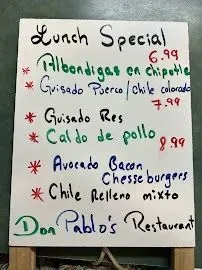 Lunch Special
6.99
* Albondigas en chipotle
* Guisado Puerco/Chile colorado
7.99
* Guisado Res
* Caldo de pollo
8.99
* Avocado Bacon
Chesseburgers
* Chile Relleno mixto
Don Pablo's Restaurant